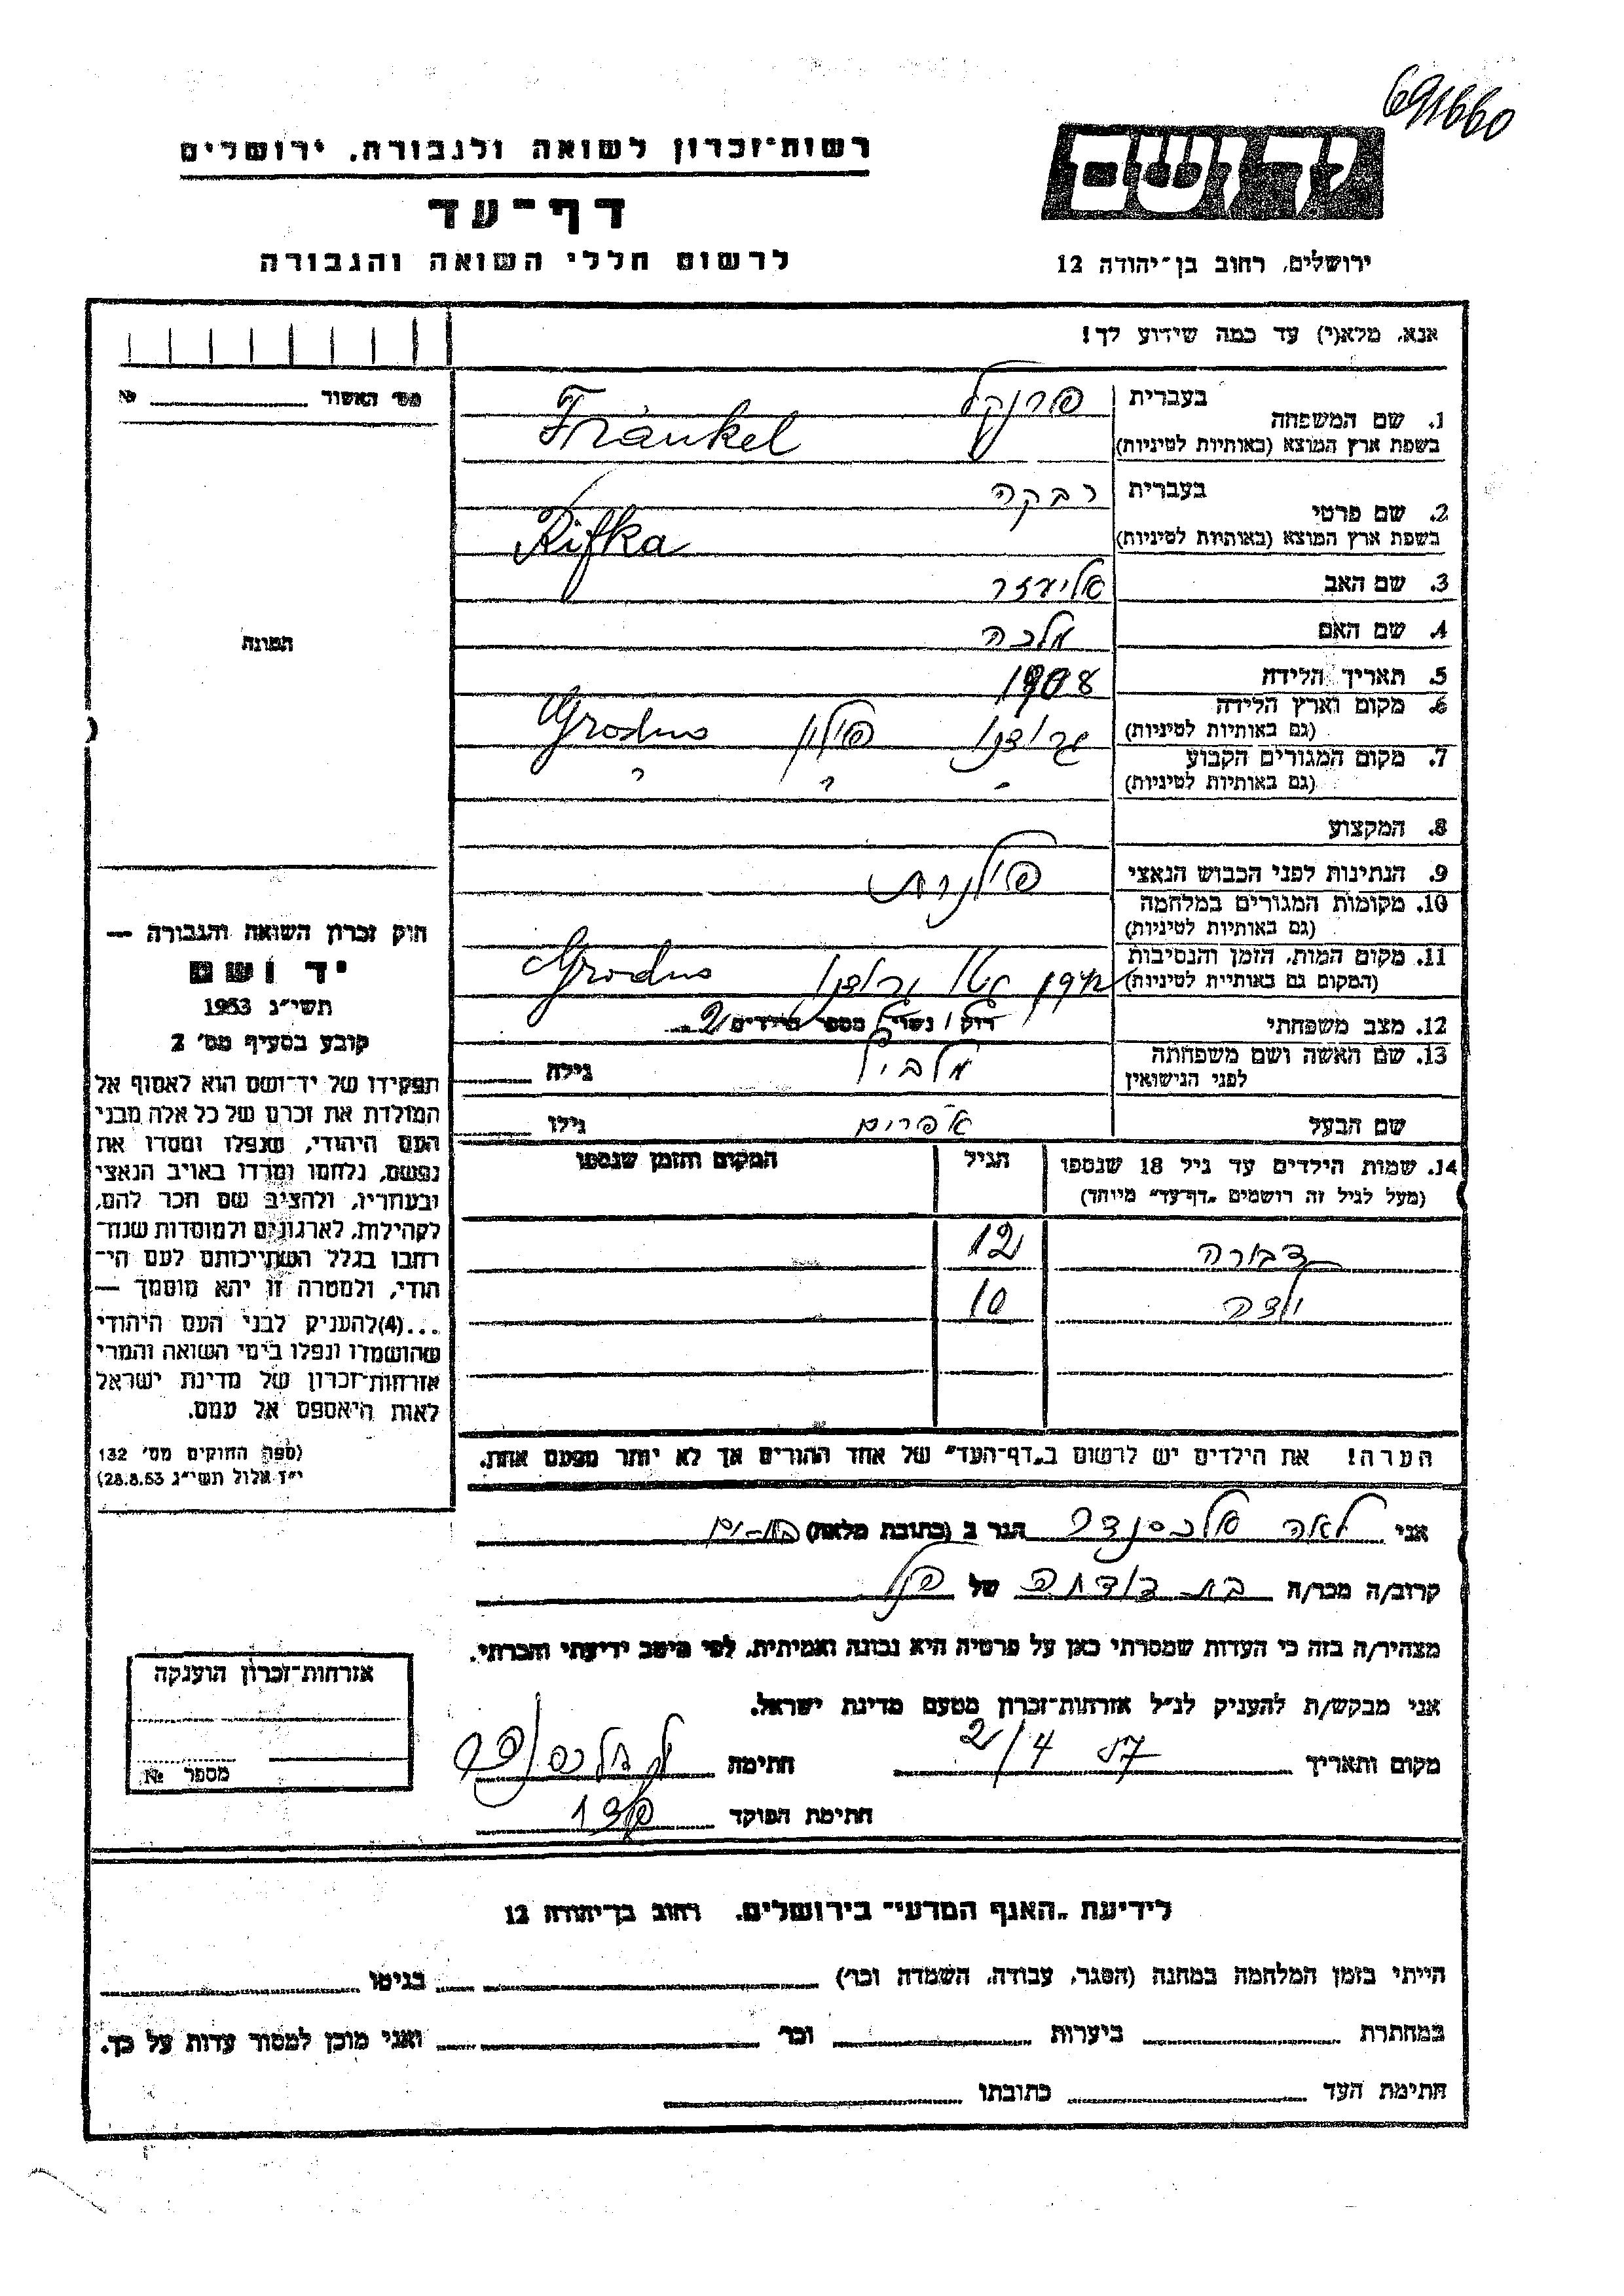 691660
יד ושם
רשות־זכרון לשואה ולגבורה, ירושלים
דף־עד
לרשום חללי השואה והגבורה
ירושלים, רחוב בן־יהודה 12
אנא, מלא(י) עד כמה שידוע לך!
מס' האשור № 
תמונה
1. שם המשפחה בעברית פרנקל
בשפת ארץ המוצא (באותיות לטיניות) Fränkel
2. שם פרטי בעברית רבקה
בשפת ארץ המוצא (באותיות לטיניות) Rifka
3. שם האב אליעזר
4. שם האם מלכה
5. תאריך הלידה 1908
6. מקום וארץ הלידה (גם באותיות לטיניות) גרודנו פולין Grodno
7. מקום המגורים הקבוע (גם באותיות לטיניות) " " "
8. המקצוע
9. הנתינות לפני הכבוש הנאצי פולנית
10. מקומות המגורים במלחמה (גם באותיות לטיניות)
11. מקום המות, הזמן והנסיבות (המקום גם באותיות לטיניות) גטו גרודנו Grodno
12. מצב משפחתי רוק / נשוי / מספר הילדים 2
13. שם האשה ושם משפחתה לפני הנישואין גילה
שם הבעל אפרים גילו
14. שמות הילדים עד גיל 18 שנספו (מעל לגיל זה רושמים „דף־עד" מיוחד) הגיל המקום והזמן שנספו
דבורה 12
ילדה 10
הערה! את הילדים יש לרשום ב„דף־העד" של אחד ההורים אך לא יותר מפעם אחת.
חוק זכרון השואה והגבורה —
יד ושם
תשי"ג 1953
קובע בסעיף מס' 2
תפקידו של יד־ושם הוא לאסוף אל
המולדת את זכרם של כל אלה מבני
העם היהודי, שנפלו ומסרו את
נפשם, נלחמו ומרדו באויב הנאצי
ובעוזריו, ולהציב שם וזכר להם,
לקהילות, לארגונים ולמוסדות שנח־
רבו בגלל השתייכותם לעם הי־
הודי, ולמטרה זו יהא מוסמך —
...(4) להעניק לבני העם היהודי
שהושמדו ונפלו בימי השואה והמרי
אזרחות־זכרון של מדינת ישראל
לאות היאספם אל עמם.
(ספר החוקים מס' 132
י"ז אלול תשי"ג 28.8.53)
אני לאה אלכסנדר הגר ב (כתובת מלאה) בת-ים
קרוב/ה מכר/ה בת דודתה של הנ"ל
מצהיר/ה בזה כי העדות שמסרתי כאן על פרטיה היא נכונה ואמיתית, לפי מיטב ידיעתי והכרתי.
אני מבקש/ת להעניק לנ"ל אזרחות־זכרון מטעם מדינת ישראל.
מקום ותאריך 2/4 57 חתימה
חתימת הפוקד
אזרחות־זכרון הוענקה
מספר №
לידיעת „האגף המדעי" בירושלים, רחוב בן־יהודה 12
הייתי בזמן המלחמה במחנה (הסגר, עבודה, השמדה וכו') בגיטו
במחתרת ביערות וכו' ואני מוכן למסור עדות על כך.
חתימת העד כתובתו